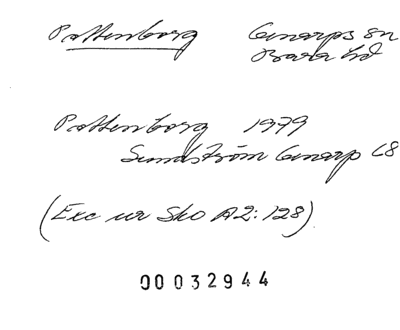 Pottenborg Genarps sn
Bara hd
Pottenborg 1979
Sundström Genarp L8
(Exc ur Sko A2:128)
00032944